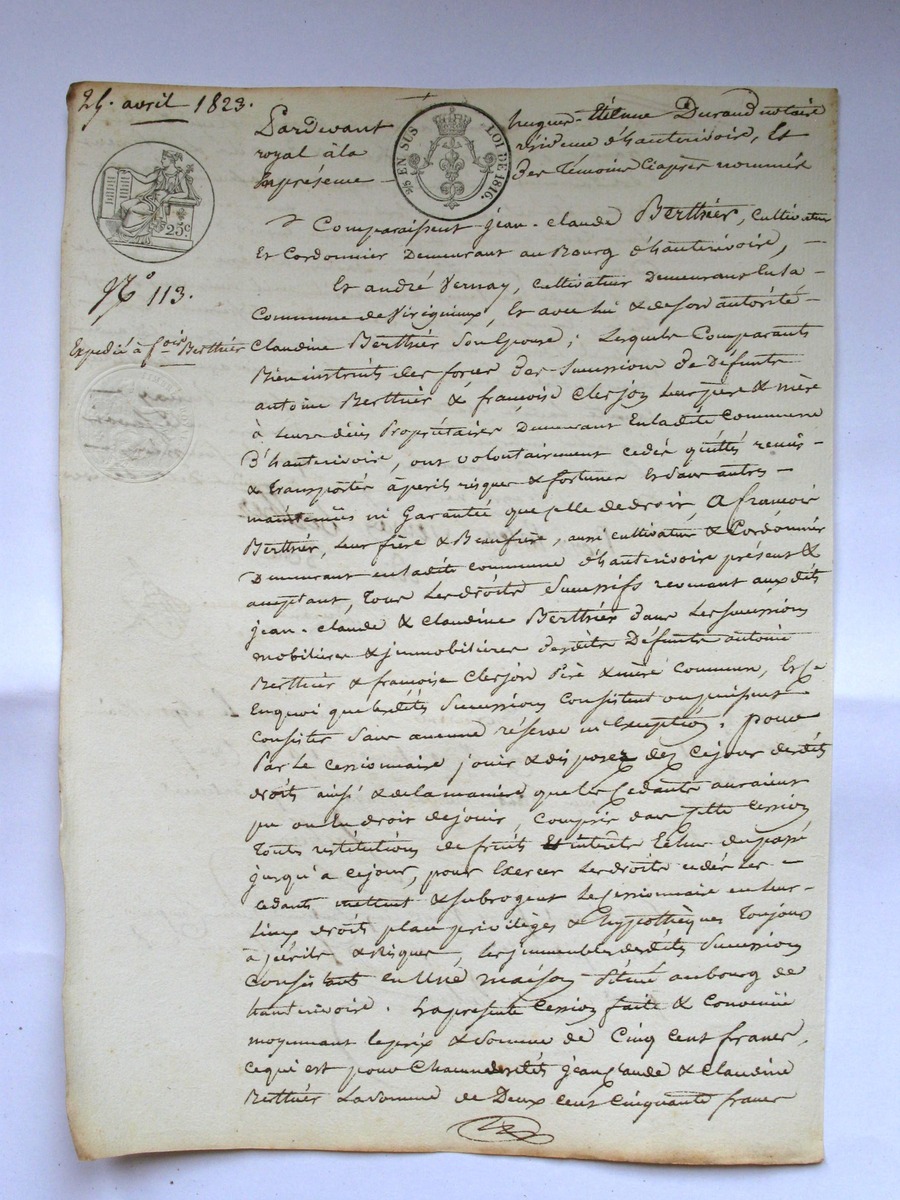 25. avril 1823.
Pardevant hugues-Etienne Durand notaire
royal à la résidence d'hauterivoire, Et
En présence des Témoins Ciaprès nommés
EN SUS LOI DE 1816.
25c
No 113.
Expedié à fois Berthier
Comparaissent jean-claude Berthier, Cultivateur
Et Cordonnier Demeurant au Bourg d'hauterivoire,
Et andré Vernay, cultivateur Demeurant En la
Commune de Virigneux, Et avec lui & de son autorité
Claudine Berthier Son Epouse; Lesquels Comparants
Bien instruits des forces des Successions de Défunts
antoine Berthier & françoise Clerjon leur père & mère
à leurs décès Propriétaires Demeurant En ladite Commune
d'hauterivoire, ont volontairement cédé quitté remis
& transporté à périls risques & fortune Et sans autres
maintenües ni Garantie que celle de droit A françois
Berthier, leur frère & Beaufrère, aussi cultivateur & Cordonnier
Demeurant en ladite commune d'hauterivoire présent &
acceptant, Tous les droits Successifs revenant aux dits
jean-claude & claudine Berthier dans les Successions
mobilières & immobilières desdits Défunts antoine
Berthier & françoise Clerjon Père & mère commun, Et ce
En quoi que lesdites Successions Consistent ou puissent
Consister Sans aucune réserve ni Exception. pour
Par le cessionnaire jouir & disposer dès ce jour desdits
droits ainsi & de la manière que les Cédants auraient
pu ou En droit de jouir, Compris dans cette Cession
Toutes restitutions de fruits Et intérêts Echus du passé
jusqu'a ce jour, pour Exercer les droits cédés les
cedants mettent & subrogent le Cessionnaire en leur
Lieux droits place privilèges & hypothèques Toujours
à périls & risques, les immeubles desdites Succession
Consistants en Une maison Située au bourg de
hauterivoire. La présente Cession faite & Convenüe
moyennant le prix & Somme de Cinq cent francs,
ce qui est pour Chacun desdits jean claude & Claudine
Berthier La Somme de Deux cent cinquante francs